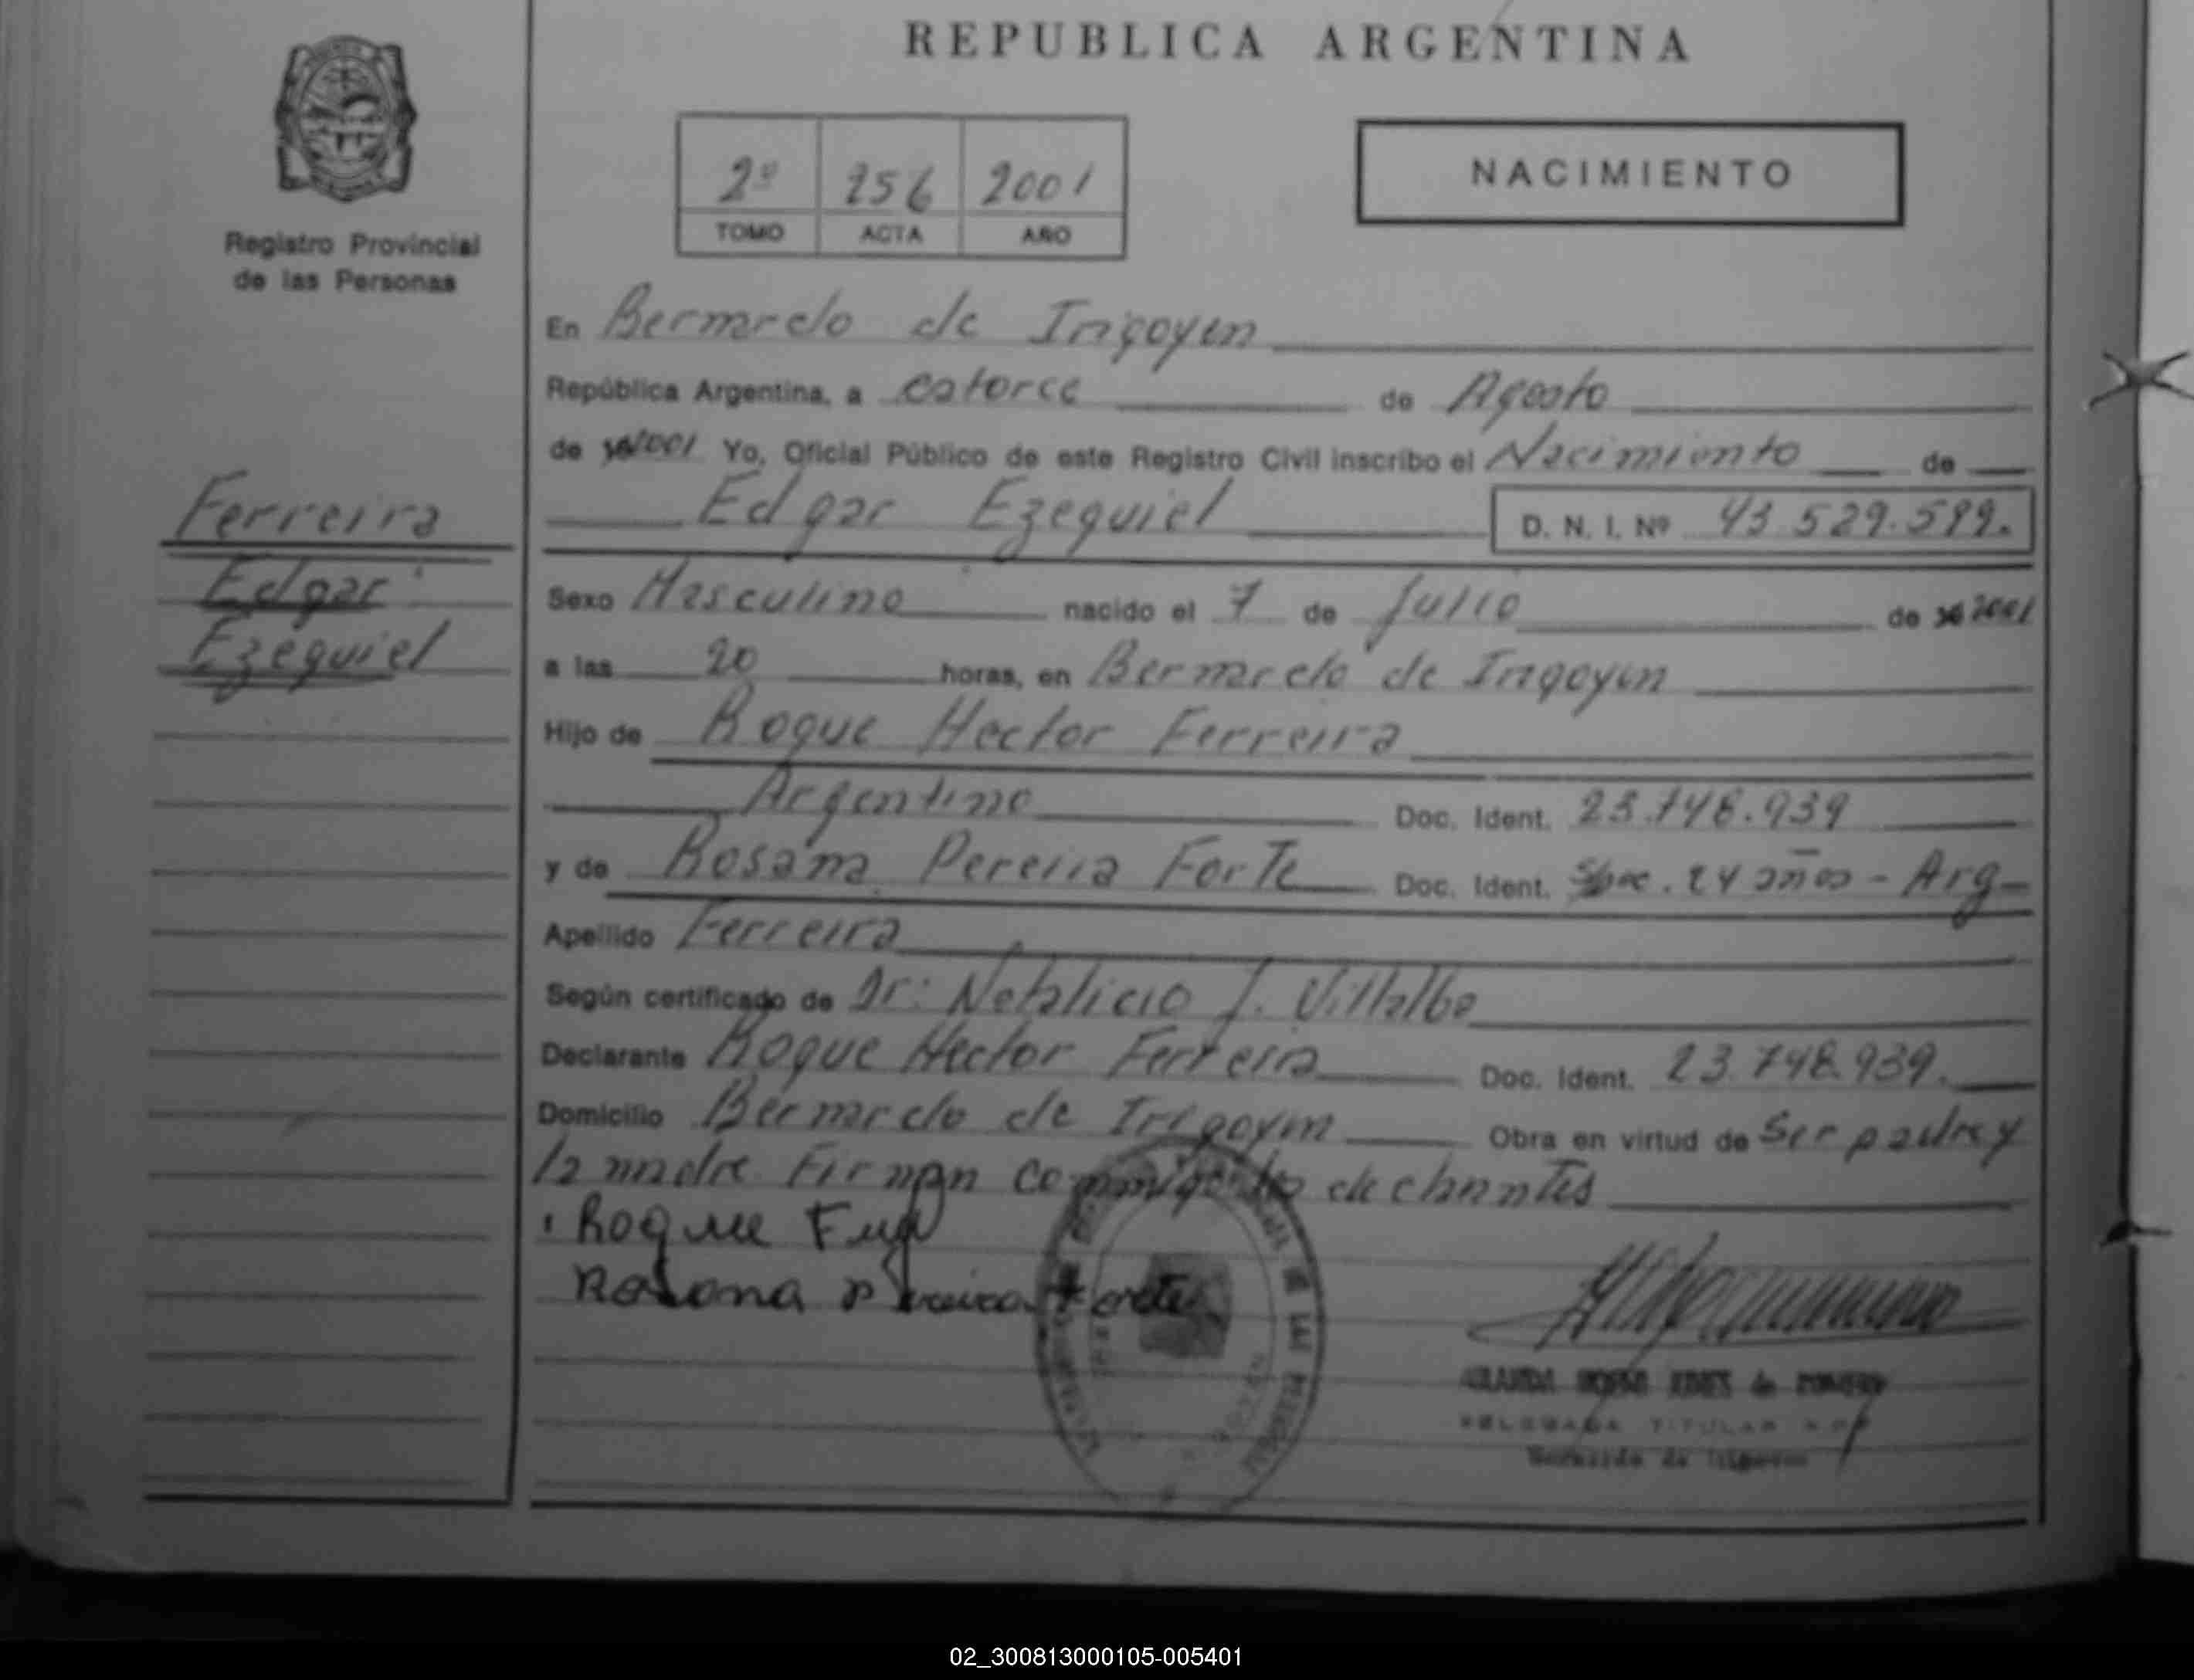 REPUBLICA ARGENTINA
Registro Provincial
de las Personas
2º 256 2001
TOMO ACTA AÑO
NACIMIENTO
En Bernardo de Irigoyen
República Argentina, a catorce de Agosto
de 2001 Yo, Oficial Público de este Registro Civil inscribo el Nacimiento de
Edgar Ezequiel D. N. I. Nº 43.529.599.
Ferreira
Edgar
Ezequiel
Sexo Masculino nacido el 7 de Julio de 2001
a las 20 horas, en Bernardo de Irigoyen
Hijo de Roque Hector Ferreira
Argentino Doc. Ident. 23.748.939
y de Rosana Pereira Forte Doc. Ident. 24 años - Arg-
Apellido Ferreira
Según certificado de Dr: Natalicio J. Villalba
Declarante Roque Hector Ferreira Doc. Ident. 23.748.939.
Domicilio Bernardo de Irigoyen Obra en virtud de Ser padre y
la madre Firman declarantes
Roque
Rosana
de ROMERO
DELEGADA TITULAR
Bernardo de Irigoyen
02_300813000105-005401